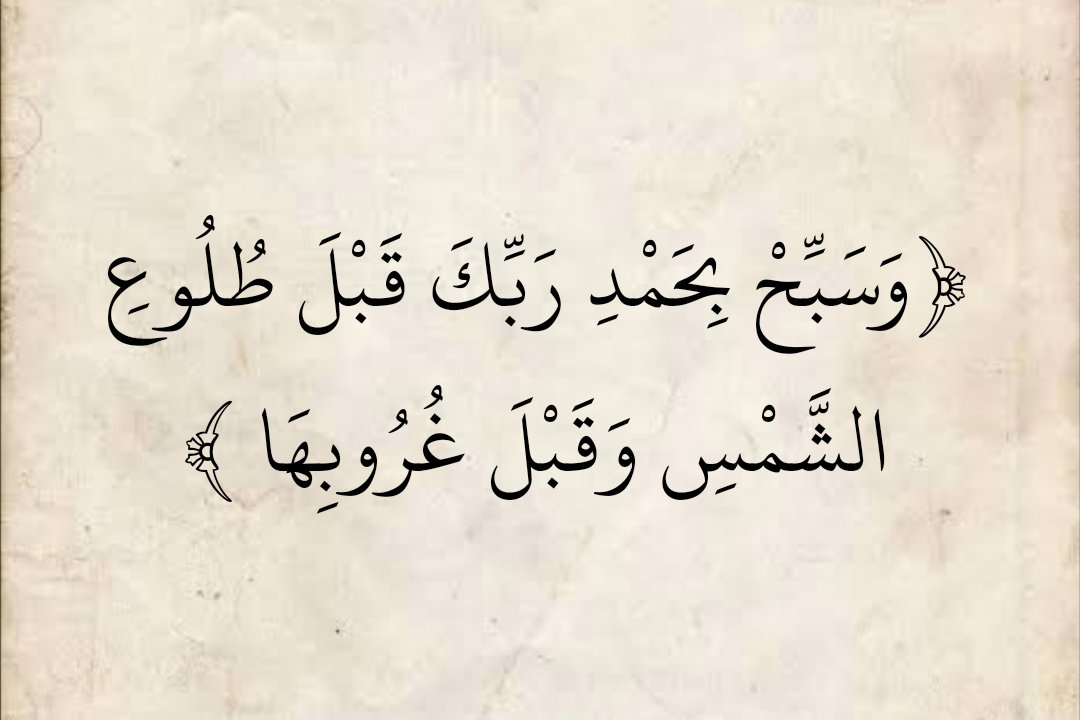 ﴿وَسَبِّحْ بِحَمْدِ رَبِّكَ قَبْلَ طُلُوعِ
الشَّمْسِ وَقَبْلَ غُرُوبِهَا ﴾